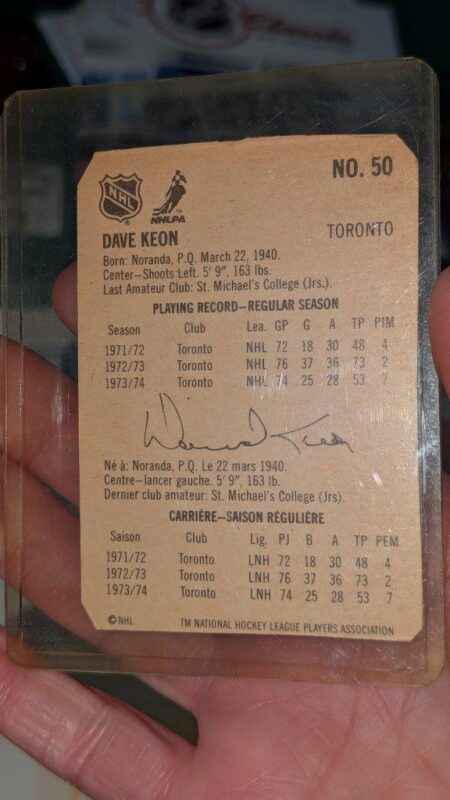 NO. 50
NHL
NHLPA
TM
DAVE KEON
TORONTO
Born: Noranda, P.Q. March 22, 1940.
Center—Shoots Left. 5' 9", 163 lbs.
Last Amateur Club: St. Michael's College (Jrs.).
PLAYING RECORD—REGULAR SEASON
Season Club Lea. GP G A TP PIM
1971/72 Toronto NHL 72 18 30 48 4
1972/73 Toronto NHL 76 37 36 73 2
1973/74 Toronto NHL 74 25 28 53 7
David Keon
Né à: Noranda, P.Q. Le 22 mars 1940.
Centre—lancer gauche. 5' 9", 163 lb.
Dernier club amateur: St. Michael's College (Jrs).
CARRIÈRE—SAISON RÉGULIÈRE
Saison Club Lig. PJ B A TP PEM
1971/72 Toronto LNH 72 18 30 48 4
1972/73 Toronto LNH 76 37 36 73 2
1973/74 Toronto LNH 74 25 28 53 7
©NHL TM NATIONAL HOCKEY LEAGUE PLAYERS ASSOCIATION